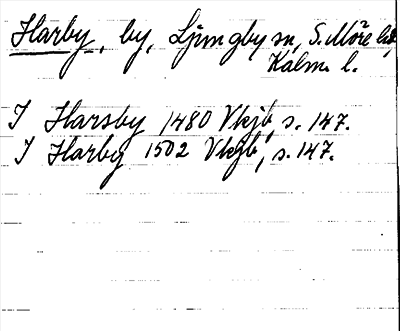 Harby, by, Ljungby sn, S. Möre hd,
Kalm. l.
I Harsby 1480 Vkjb, s. 147.
I Harby 1502 Vkjb, s. 147.